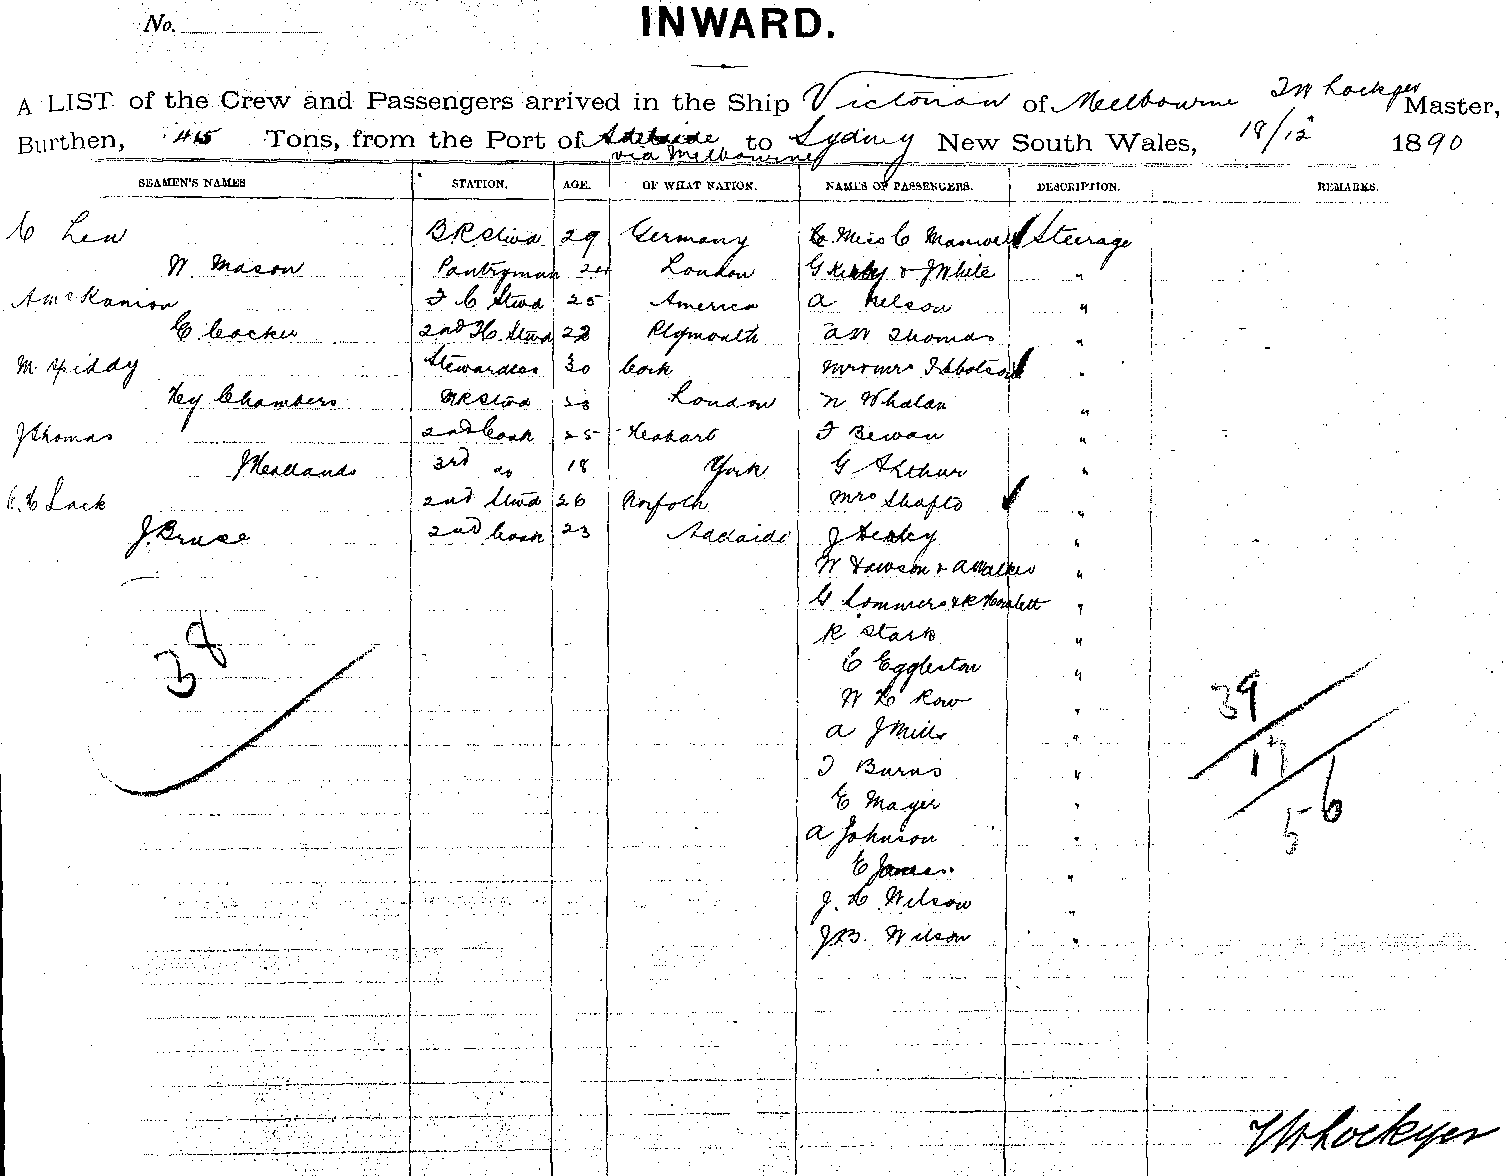 No.
INWARD.
A LIST of the Crew and Passengers arrived in the Ship Victorian of Melbourne T W Lockyer Master,
Burthen, Tons, from the Port of Adelaide to Sydney New South Wales, 18/12 1890
via Melbourne
SEAMEN'S NAMES STATION. AGE. OF WHAT NATION. NAMES OF PASSENGERS. DESCRIPTION. REMARKS.
C Lew B R Stwd 29 Germany Miss C Manwell Steerage
W. Mason Pantryman 24 London G Kirby & J White "
F C Stwd 25 America A Nelson "
C Cocker 2nd Stwd Plymouth A W Thomas "
M Stewardess 30 Cork Mr & Mrs Ibbotson "
Hy Chambers Stwd London W Whalan "
J Thomas 2nd Cook 25 Hobart T Bewan "
J Headlands 3rd do 18 York G Arthur "
Lack 2nd Stwd 26 Norfolk Mrs Shafto "
J. Bruce 2nd Cook 23 Adelaide J "
W Dawson & A Walker "
G Sommers & R Howlett "
R Stark "
C Eggleston "
38
W H Row "
39
A J Mills "
17
T Burns "
E Mayer "
56
A Johnson "
E James "
J. H Wilson "
J B. Wilson "
T W Lockyer